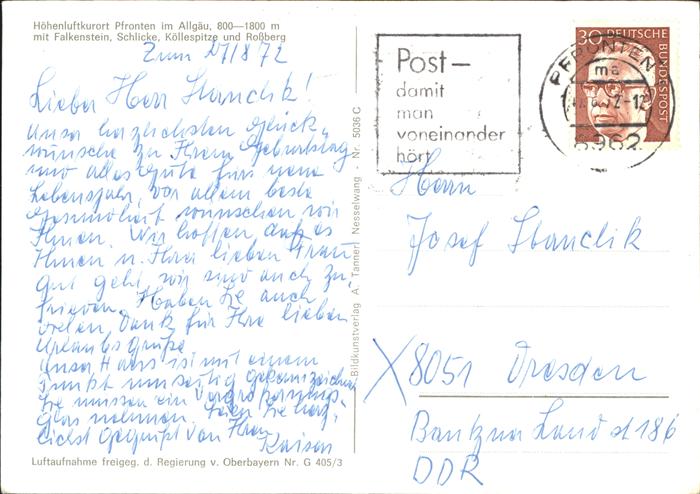 Höhenluftkurort Pfronten im Allgäu, 800—1800 m
mit Falkenstein, Schlicke, Köllespitze und Roßberg
Zum 27/8 72
Lieber Herr Stanclik!
Unsere herzlichsten Glück-
wünsche zu Ihrem Geburtstag
und alles Gute fürs neue
Lebensjahr, vor allem beste
Gesundheit wünschen wir
Ihnen. Wir hoffen, daß es
Ihnen u. Ihrer lieben Frau
gut geht, wir sind auch zu-
frieden. Haben Sie auch
vielen Dank für Ihre lieben
Urlaubsgrüße.
Unser Haus ist mit einem
Punkt umseitig gekennzeichnet
Sie müssen ein Vergrößerungs-
glas nehmen. Seien Sie herz-
lichst gegrüßt von Ihren
Kaiser
Luftaufnahme freigeg. d. Regierung v. Oberbayern Nr. G 405/3
Bildkunstverlag A. Tanner, Nesselwang - Nr. 5036 C
Post—
damit
man
voneinander
hört
30 DEUTSCHE
BUNDESPOST
PFRONTEN
ma
8962
Herrn
Josef Stanclik
X 8051 Dresden
DDR